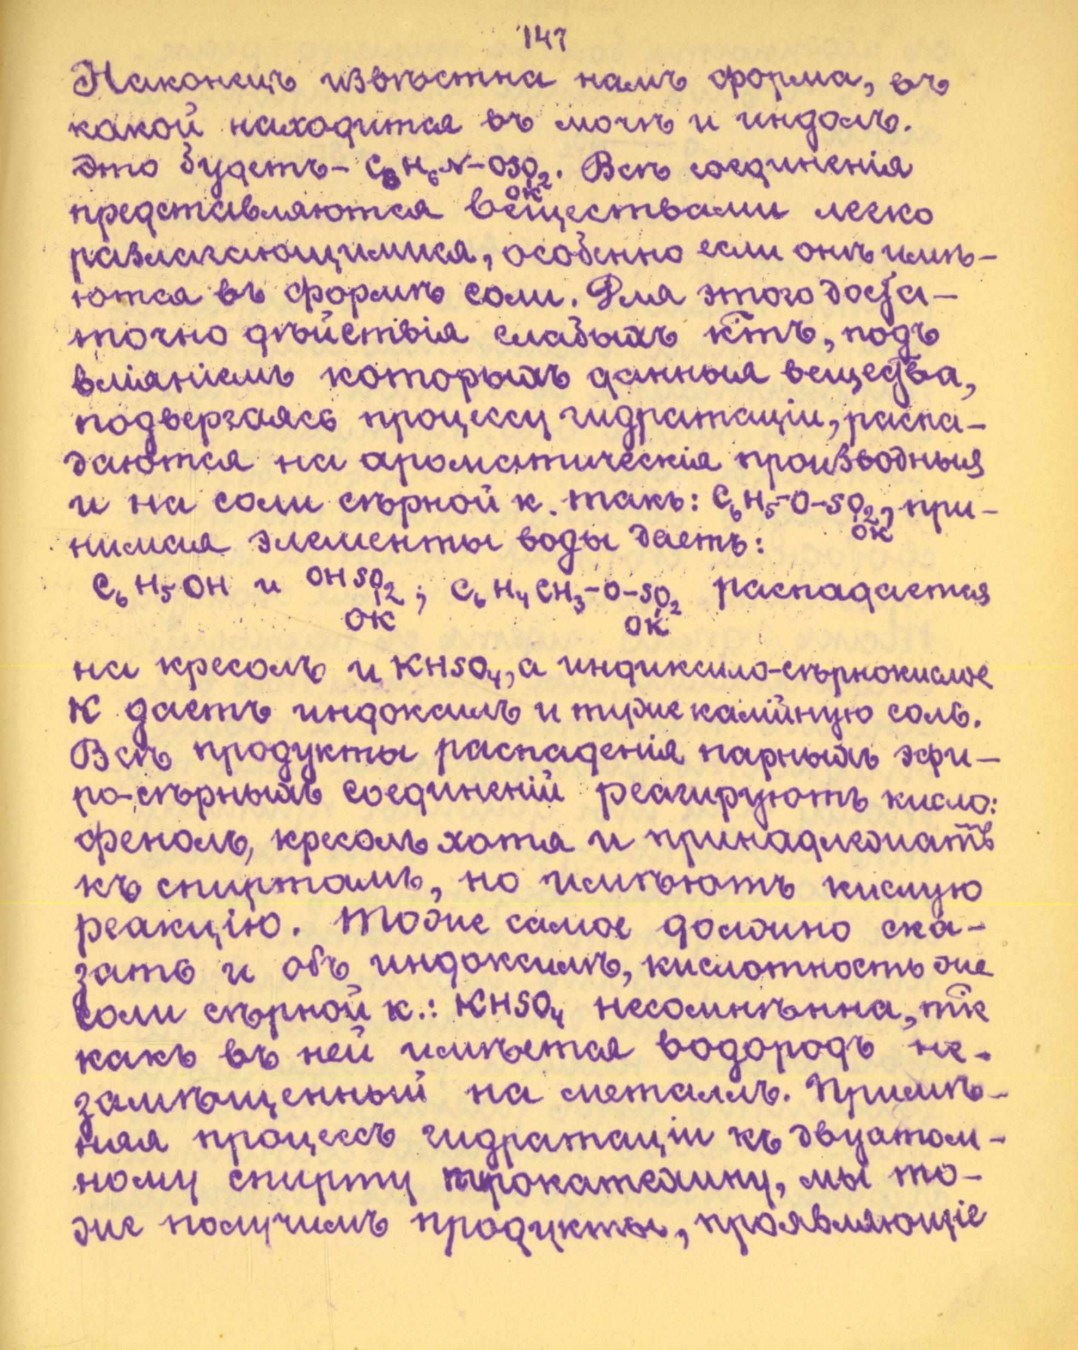 147
Наконецъ извѣстна намъ форма, въ
какой находится въ мочѣ и индолъ.
Это будетъ – C₈H₆N–OSO₂. Всѣ соединенія
OK
представляются веществами легко
разлагающимися, особенно если онѣ имѣ-
ются въ формѣ соли. Для этого доста-
точно дѣйствія слабыхъ к-тъ, подъ
вліяніемъ которыхъ данныя вещества,
подвергаясь процессу гидратаціи, распа-
даются на ароматическія производныя
и на соли сѣрной к. такъ: C₆H₅–O–SO₂, при-
OK
нимая элементы воды даетъ:
C₆H₅OH и OHSO₂; C₆H₄CH₃–O–SO₂ распадается
OK OK
на кресолъ и KHSO₄, а индиксило-сѣрнокислое
К даетъ индоксилъ и туже калійную соль.
Всѣ продукты распаденія парныхъ эфи-
ро-сѣрныхъ соединеній реагируютъ кисло:
фенолъ, кресолъ хотя и принадлежатъ
къ спиртамъ, но имѣютъ кислую
реакцію. Тоже самое должно ска-
зать и объ индоксилѣ, кислотность же
соли сѣрной к.: KHSO₄ несомнѣнна, тк
какъ въ ней имѣется водородъ не-
замѣщенный на металлъ. Примѣ-
няя процессъ гидратаціи къ двуатом-
ному спирту пирокатехину, мы то-
же получимъ продукты, проявляющіе